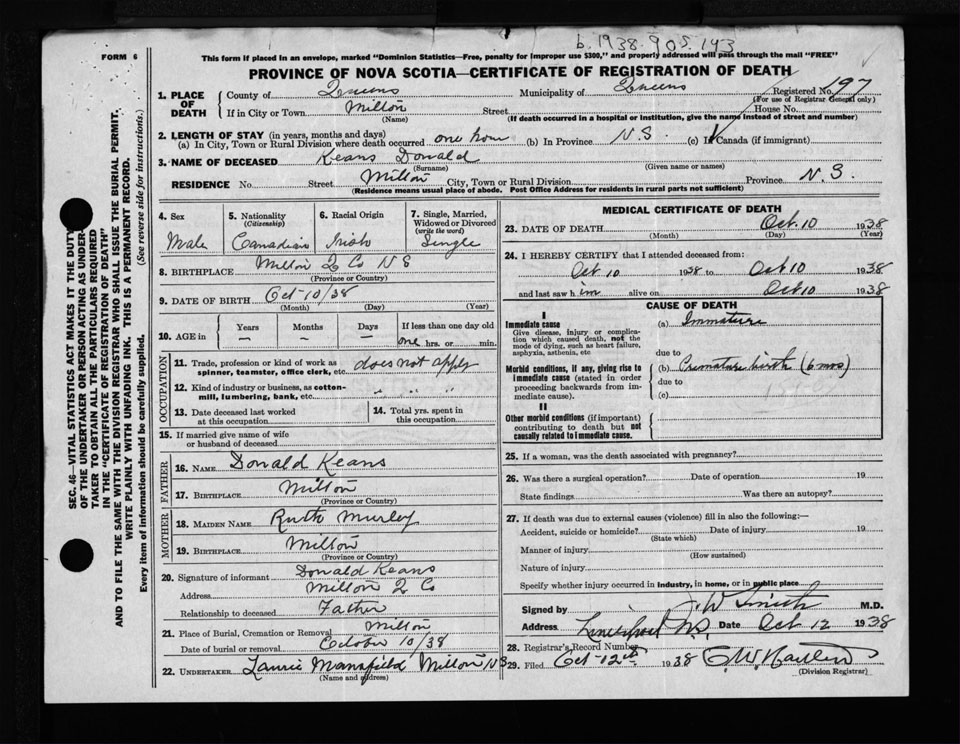 b. 1938. 905. 143
FORM 6
This form if placed in an envelope, marked "Dominion Statistics—Free, penalty for improper use $300," and properly addressed will pass through the mail "FREE"
PROVINCE OF NOVA SCOTIA—CERTIFICATE OF REGISTRATION OF DEATH
1. PLACE OF DEATH
County of Queens Municipality of Queens Registered No. 197
(For use of Registrar General only)
If in City or Town Milton Street House No.
(Name) (If death occurred in a hospital or institution, give the name instead of street and number)
2. LENGTH OF STAY (in years, months and days)
(a) In City, Town or Rural Division where death occurred one hour (b) In Province N.S. (c) In Canada (if immigrant)
3. NAME OF DECEASED Keans Donald
(Surname) (Given name or names)
RESIDENCE No. Street Milton City, Town or Rural Division Province N.S.
(Residence means usual place of abode. Post Office Address for residents in rural parts not sufficient)
4. Sex
Male
5. Nationality
(Citizenship)
Canadian
6. Racial Origin
Irish
7. Single, Married, Widowed or Divorced
(write the word)
Single
8. BIRTHPLACE Milton Q Co N S
(Province or Country)
9. DATE OF BIRTH Oct 10/38
(Month) (Day) (Year)
10. AGE in Years Months Days If less than one day old
— — — one hrs. or min.
OCCUPATION
11. Trade, profession or kind of work as spinner, teamster, office clerk, etc. does not apply
12. Kind of industry or business, as cotton-mill, lumbering, bank, etc. " " "
13. Date deceased last worked at this occupation
14. Total yrs. spent in this occupation
15. If married give name of wife or husband of deceased
FATHER
16. NAME Donald Keans
17. BIRTHPLACE Milton
(Province or Country)
MOTHER
18. MAIDEN NAME Ruth Murley
19. BIRTHPLACE Milton
(Province or Country)
20. Signature of informant Donald Keans
Address Milton Q Co
Relationship to deceased Father
21. Place of Burial, Cremation or Removal Milton
Date of burial or removal October 10/38
22. UNDERTAKER Laurie Mansfield Milton NS
(Name and address)
MEDICAL CERTIFICATE OF DEATH
23. DATE OF DEATH Oct. 10 1938
(Month) (Day) (Year)
24. I HEREBY CERTIFY that I attended deceased from:
Oct 10 1938 to Oct 10 1938
and last saw h im alive on Oct 10 1938
CAUSE OF DEATH
I
Immediate cause
Give disease, injury or complication which caused death, not the mode of dying, such as heart failure, asphyxia, asthenia, etc
(a) Immature
due to
Morbid conditions, if any, giving rise to immediate cause (stated in order proceeding backwards from immediate cause).
(b) Premature birth (6 mos)
due to
(c)
II
Other morbid conditions (if important) contributing to death but not causally related to immediate cause.
25. If a woman, was the death associated with pregnancy?
26. Was there a surgical operation? Date of operation 19
State findings Was there an autopsy?
27. If death was due to external causes (violence) fill in also the following:—
Accident, suicide or homicide? Date of injury 19
(State which)
Manner of injury
(How sustained)
Nature of injury
Specify whether injury occurred in industry, in home, or in public place
Signed by J. W. Smith M.D.
Address Liverpool N.S. Date Oct 12 1938
28. Registrar's Record Number
29. Filed Oct-12th 1938
(Division Registrar)
SEC. 46—VITAL STATISTICS ACT MAKES IT THE DUTY
OF THE UNDERTAKER OR PERSON ACTING AS UNDER-
TAKER TO OBTAIN ALL THE PARTICULARS REQUIRED
IN THE "CERTIFICATE OF REGISTRATION OF DEATH"
AND TO FILE THE SAME WITH THE DIVISION REGISTRAR WHO SHALL ISSUE THE BURIAL PERMIT.
WRITE PLAINLY WITH UNFADING INK. THIS IS A PERMANENT RECORD.
Every item of information should be carefully supplied. (See reverse side for instructions).